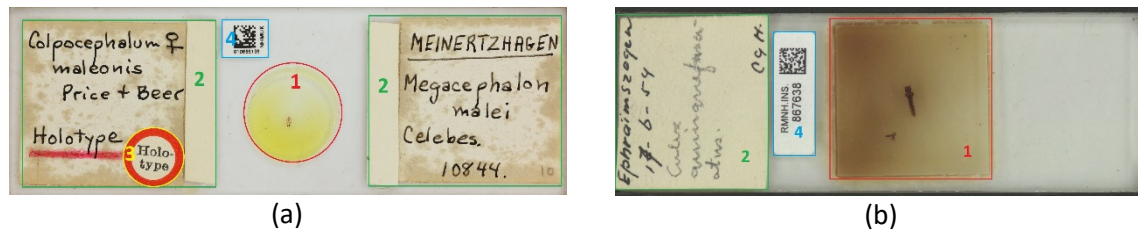 Colpocephalum ♀
maleonis
Price + Beer
Holotype
3
Holo-
type
2
4
NHMUK
010665109
1
2
MEINERTZHAGEN
Megacephalon
malei
Celebes.
10844.
10
(a)
Ephraimszogen
17-6-54
Culex
quinquefasci
atus.
C9H.
2
RMNH.INS.
867638
4
1
(b)